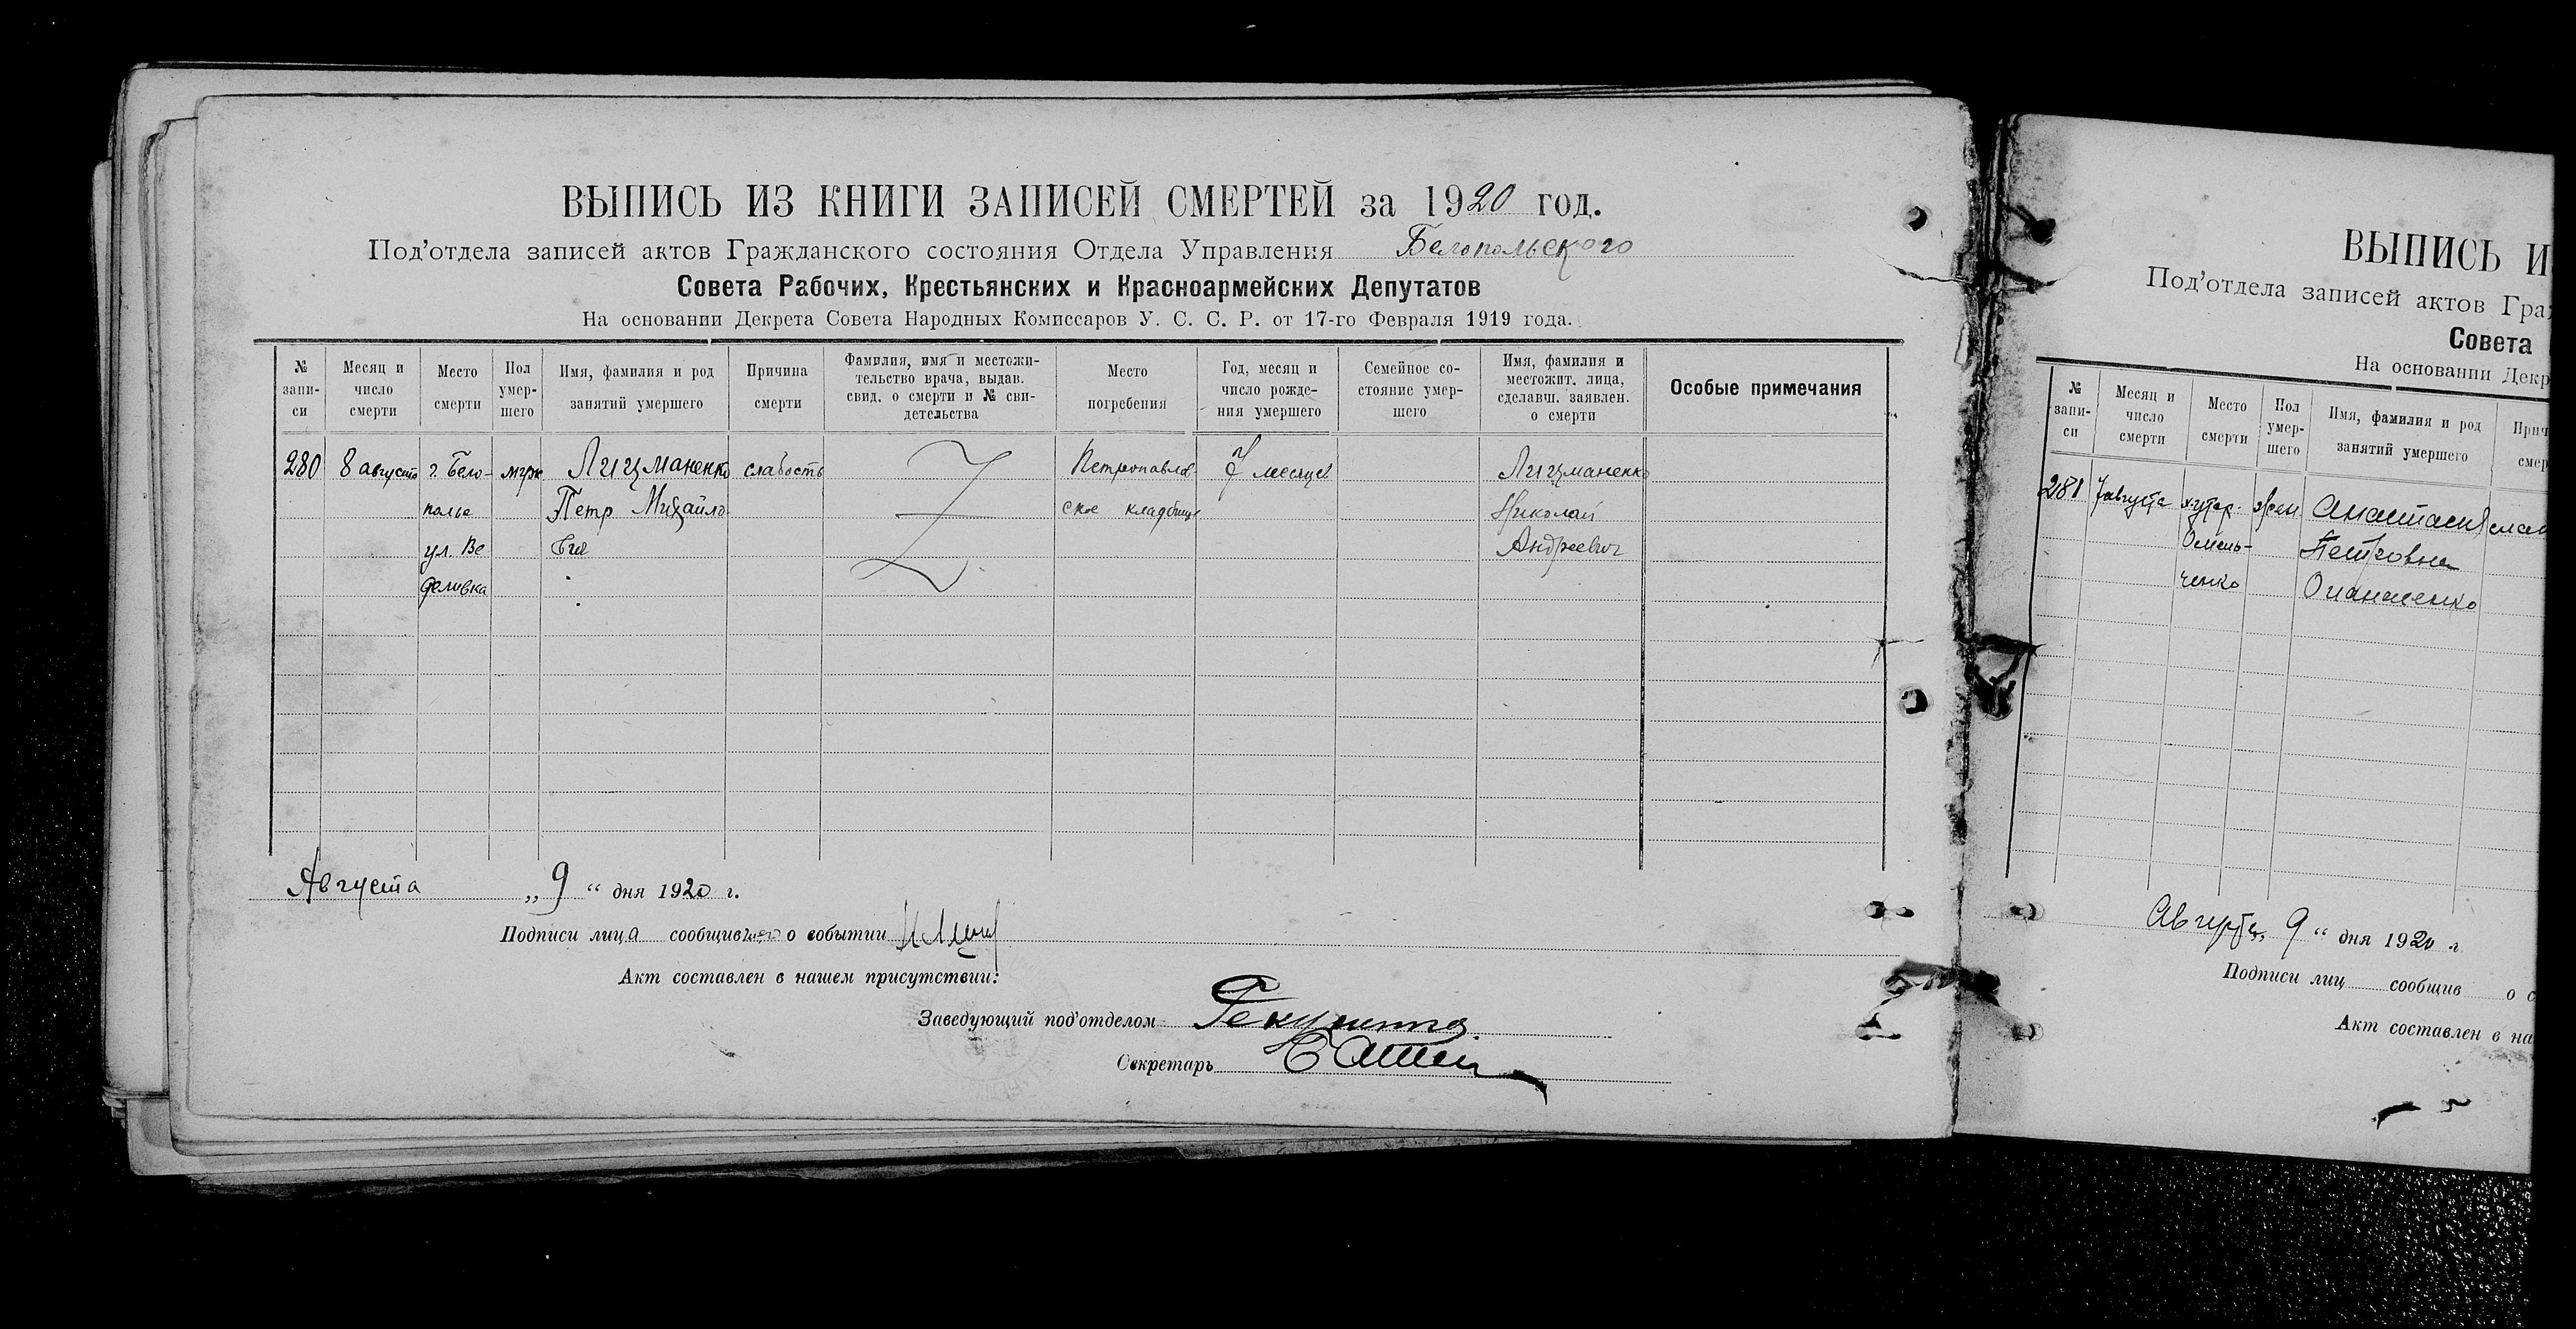 ВЫПИСЬ ИЗ КНИГИ ЗАПИСЕЙ СМЕРТЕЙ за 1920 год.
Под'отдела записей актов Гражданского состояния Отдела Управления Белопольского
Совета Рабочих, Крестьянских и Красноармейских Депутатов
На основании Декрета Совета Народных Комиссаров У. С. С. Р. от 17-го Февраля 1919 года.
№ запи-
си
Месяц и
число
смерти
Место
смерти
Пол
умер-
шего
Имя, фамилия и род
занятий умершего
Причина
смерти
Фамилия, имя и местожи-
тельство врача, выдав.
свид. о смерти и № сви-
детельства
Место
погребения
Год, месяц и
число рожде-
ния умершего
Семейное со-
стояние умер-
шего
Имя, фамилия и
местожит. лица,
сделавш. заявлен.
о смерти
Особые примечания
280 8 августа г. Бело- муж Лицманенко слабость Петропавлов- 7 месяцев Лицманенко
полье Петр Михайло- ское кладбище Николай
ул. Ве вич Андреевич
Августа „ 9 “ дня 1920 г.
Подписи лица сообщившего о событии
Акт составлен в нашем присутствии:
Заведующий под'отделом
Секретарь
ВЫПИСЬ И
Под'отдела записей актов Гра
Совета
На основании Декр
№
запи-
си
Месяц и
число
смерти
Место
смерти
Пол
умер-
шего
Имя, фамилия и род
занятий умершего
Прич
смер
281 7 августа хутор жен Анастасия
Омель- Петровна
ченко
Августа „ 9 “ дня 1920 г.
Подписи лиц сообщив о с
Акт составлен в на